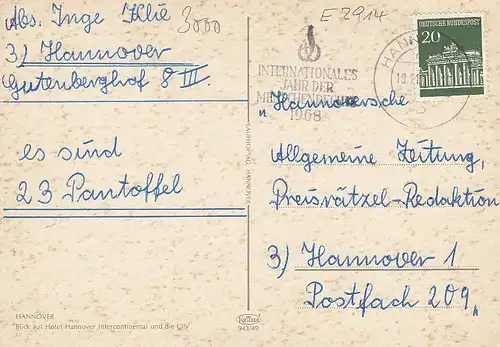 Abs. Inge Klie
3) Hannover
Gutenberghof 8 III.
3000
E 2914
es sind
23 Pantoffel
INTERNATIONALES
JAHR DER
MENSCHENRECHTE
1968
HANNOVER
DEUTSCHE BUNDESPOST
20
"Hannoversche
Allgemeine Zeitung,
Preisrätzel-Redaktion
3) Hannover 1
Postfach 209"
HANNOVER
Blick auf Hotel Hannover Intercontinental und die City
943/49